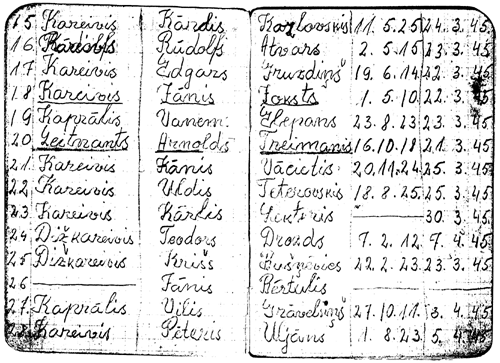 15 Kareivis Kārlis Kozlovskis 11. 5. 25. 24. 3. 45.
16 Rūdolfs Atvars 2. 5. 15 23. 3. 45.
17 Kareivis Edgars Gruzdiņš 19. 6. 14. 22. 3. 45.
18 Kareivis Jānis Zoksts 1. 5. 10. 22. 3. 45.
19 Kaprālis Vanem. Zlepons 23. 8. 23 23. 3. 45.
20 Leitnants Arnolds Treimanis 16. 10. 18 21. 3. 45.
21. Kareivis Jānis Vācietis 20. 11. 24. 25. 3. 45.
22. Kareivis Uldis Teterovskis 18. 8. 25. 25. 3. 45.
23. Kareivis Kārlis Lekteris 30. 3. 45.
24 Dižkareivis Teodors Drozds 7. 2. 12. 7. 4. 45.
25 Dižkareivis Krišs 22. 2. 23. 23. 3. 45.
26 Jānis Bērtulis
27. Kaprālis Vilis Grāvdiņš 27. 10. 11. 3. 4. 45
28. Kareivis Pēteris Uljāns 1. 8. 23 5. 4. 45